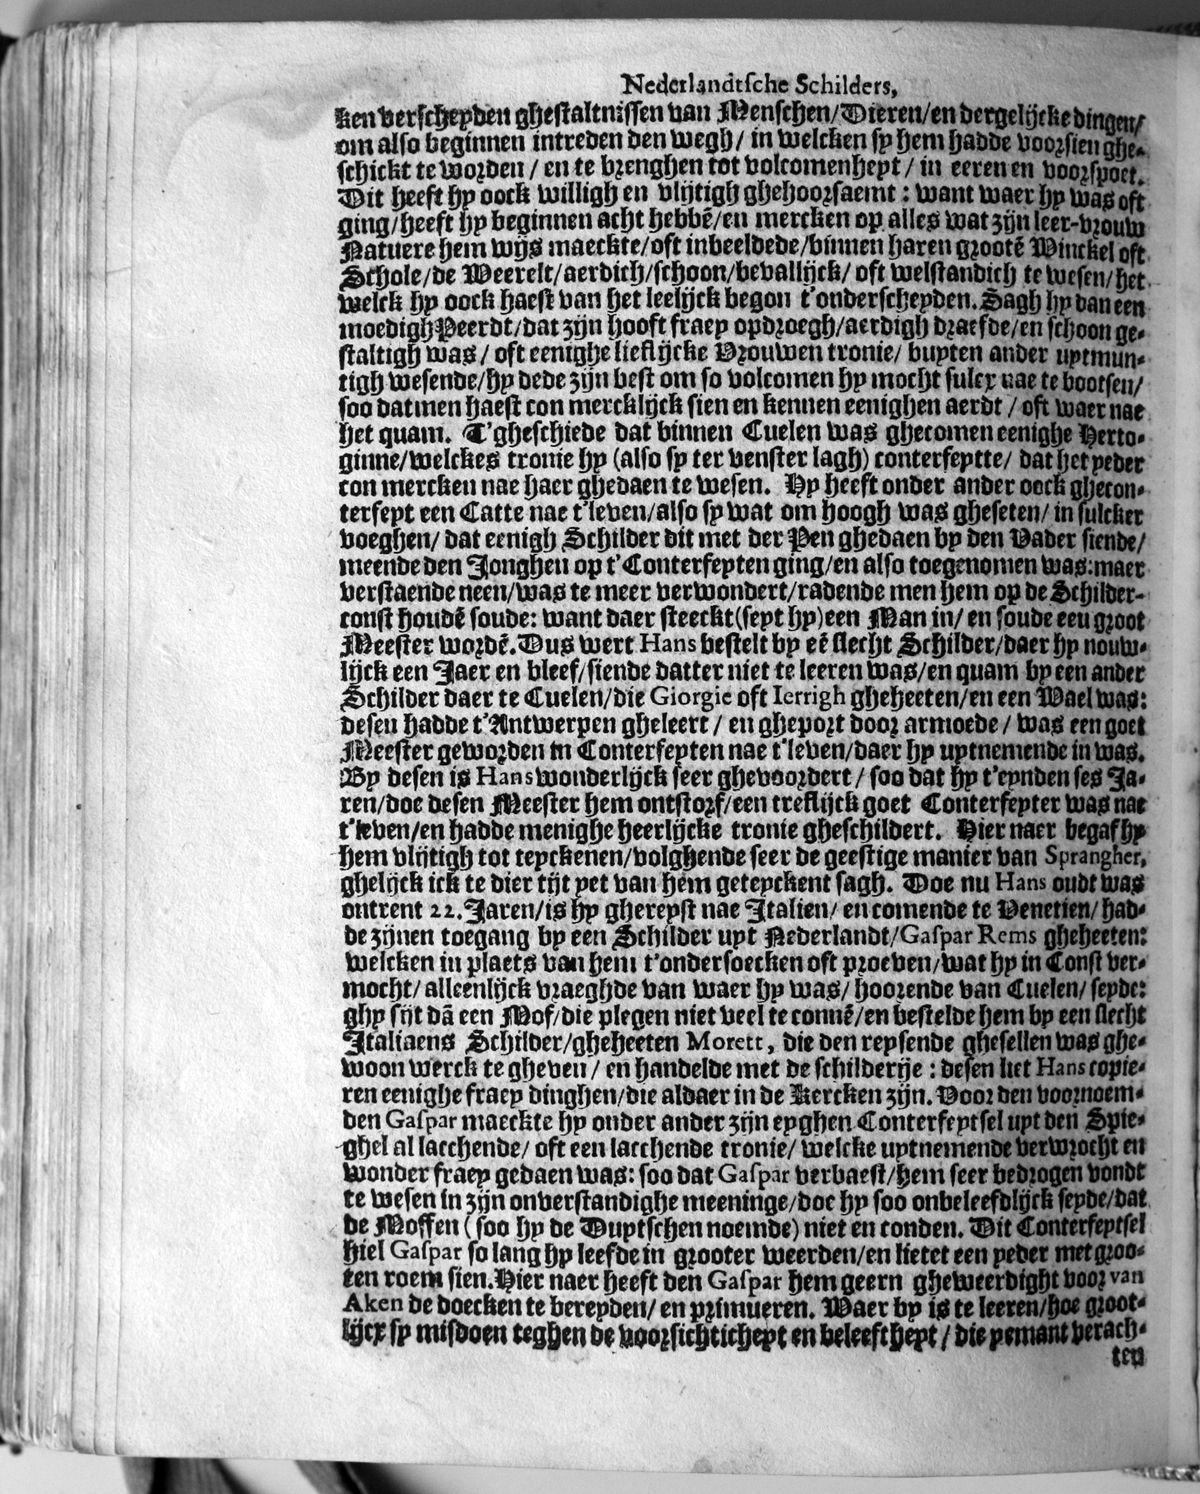 Nederlandtsche Schilders,
ken verscheyden ghestaltnissen van Menschen/Dieren/en dergelijcke dingen/
om also beginnen intreden den wegh/ in welcken sy hem hadde voorsien ghe-
schickt te worden / en te brenghen tot volcomenheyt / in eeren en voorspoet.
Dit heeft hy oock willigh en vlijtigh ghehoorsaemt : want waer hy was oft
ging/heeft hy beginnen acht hebbē/en mercken op alles wat zijn leer-vrouw
Natuere hem wijs maeckte/oft inbeeldede/binnen haren grootē Winckel oft
Schole/de Weerelt/aerdich/schoon/bevallijck/ oft welstandich te wesen/het
welck hy oock haest van het leelijck begon t'onderscheyden. Sagh hy dan een
moedigh Peerdt/dat zijn hooft fraey opdroegh/aerdigh draefde/en schoon ge-
staltigh was / oft eenighe lieflijcke Vrouwen tronie/ buyten ander uytmun-
tigh wesende/hy dede zijn best om so volcomen hy mocht sulcx nae te bootsen/
soo datmen haest con mercklijck sien en kennen eenighen aerdt / oft waer nae
het quam. T'gheschiede dat binnen Cuelen was ghecomen eenighe Herto-
ginne/welckes tronie hy (also sy ter venster lagh) conterfeytte/ dat het yeder
con mercken nae haer ghedaen te wesen. Hy heeft onder ander oock ghecon-
terfeyt een Catte nae t'leven/also sy wat om hoogh was gheseten/ in sulcker
voeghen/ dat eenigh Schilder dit met der Pen ghedaen by den Vader siende/
meende den Jonghen op t'Conterfeyten ging/en also toegenomen was:maer
verstaende neen/was te meer verwondert/radende men hem op de Schilder-
const houdē soude: want daer steeckt (seyt hy) een Man in/ en soude een groot
Meester wordē. Dus wert Hans bestelt by eē slecht Schilder/daer hy nouw-
lijck een Jaer en bleef/siende datter niet te leeren was/en quam by een ander
Schilder daer te Cuelen/die Giorgie oft Ierrigh gheheeten/en een Wael was:
desen hadde t'Antwerpen gheleert / en gheport door armoede / was een goet
Meester geworden in Conterfeyten nae t'leven/daer hy uytnemende in was.
By desen is Hans wonderlijck seer ghevoordert / soo dat hy t'eynden ses Ja-
ren/doe desen Meester hem ontstorf/een treflijck goet Conterfeyter was nae
t'leven/en hadde menighe heerlijcke tronie gheschildert. Hier naer begaf hy
hem vlijtigh tot teyckenen/volghende seer de geestige manier van Sprangher,
ghelijck ick te dier tijt yet van hem geteyckent sagh. Doe nu Hans oudt was
ontrent 22. Jaren/is hy ghereyst nae Italien/ en comende te Venetien/ had-
de zijnen toegang by een Schilder uyt Nederlandt/Gaspar Rems gheheeten:
welcken in plaets van hem t'ondersoecken oft proeven/wat hy in Const ver-
mocht/ alleenlijck vraeghde van waer hy was/ hoorende van Cuelen/ seyde:
ghy sijt dā een Mof/die plegen niet veel te connē/en bestelde hem by een slecht
Italiaens Schilder/gheheeten Morett, die den reysende ghesellen was ghe-
woon werck te gheven / en handelde met de schilderije : desen liet Hans copie-
ren eenighe fraey dinghen/die aldaer in de Kercken zijn. Voor den voornoem-
den Gaspar maeckte hy onder ander zijn eyghen Conterfeytsel uyt den Spie-
ghel al lacchende/ oft een lacchende tronie/ welcke uytnemende verwrocht en
wonder fraey gedaen was: soo dat Gaspar verbaest/hem seer bedrogen vondt
te wesen in zijn onverstandighe meeninge/doe hy soo onbeleefdlijck seyde/dat
de Moffen (soo hy de Duytschen noemde) niet en conden. Dit Conterfeytsel
hiel Gaspar so lang hy leefde in grooter weerden/en lietet een yeder met groo-
ten roem sien. Hier naer heeft den Gaspar hem geern gheweerdight voor van
Aken de doecken te bereyden/ en primueren. Waer by is te leeren/hoe groot-
lijcx sy misdoen teghen de voorsichticheyt en beleeftheyt / die yemant verach-
ten